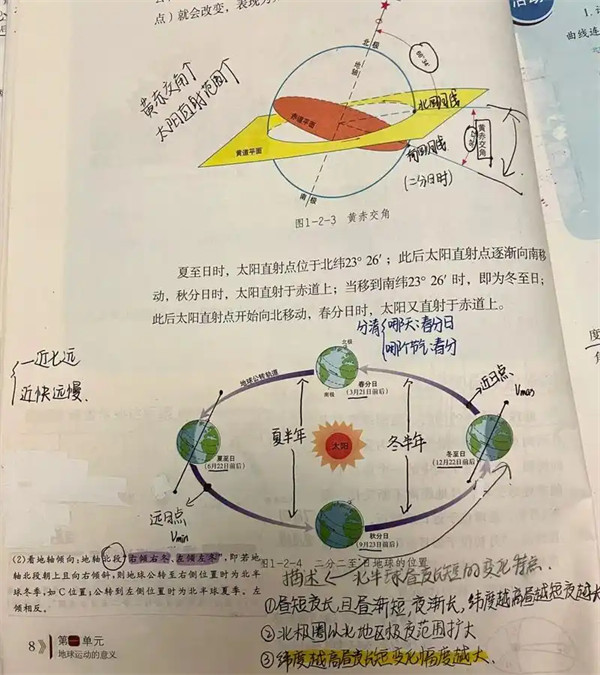 点）就会改变，表现为
活动
1.
曲线连
北极
地轴
黄赤交角↑
太阳直射范围↑
北回归线
赤道平面
黄道平面
黄赤交角
南回归线
(二分日时)
南极
图1-2-3 黄赤交角
夏至日时，太阳直射点位于北纬23° 26′；此后太阳直射点逐渐向南移
动，秋分日时，太阳直射于赤道上；当移到南纬23° 26′ 时，即为冬至日；
此后太阳直射点开始向北移动，春分日时，太阳又直射于赤道上。
分清 哪天:春分日
哪个节气:春分
一近七远
近快远慢.
北极
地球公转轨道
春分日
(3月21日前后)
南极
近日点
Vmax
夏至日
(6月22日前后)
夏半年
太阳
冬半年
冬至日
(12月22日前后)
远日点
Vmin
秋分日
(9月23日前后)
图1-2-4 二分二至日地球的位置
(2)看地轴倾向:地轴北段“右倾右冬、左倾左冬”,即若地
轴北段朝上且向右倾斜,则地球公转至右侧位置时为北半
球冬季,如C位置;公转到左侧位置时为北半球夏季。左
倾相反。
描述 北半球昼夜长短的变化特点.
①昼短夜长,且昼渐短,夜渐长,纬度越高昼越短夜越长
②北极圈以北地区极夜范围扩大
③纬度越高昼夜长短变化幅度越大.
8 第一单元
地球运动的意义